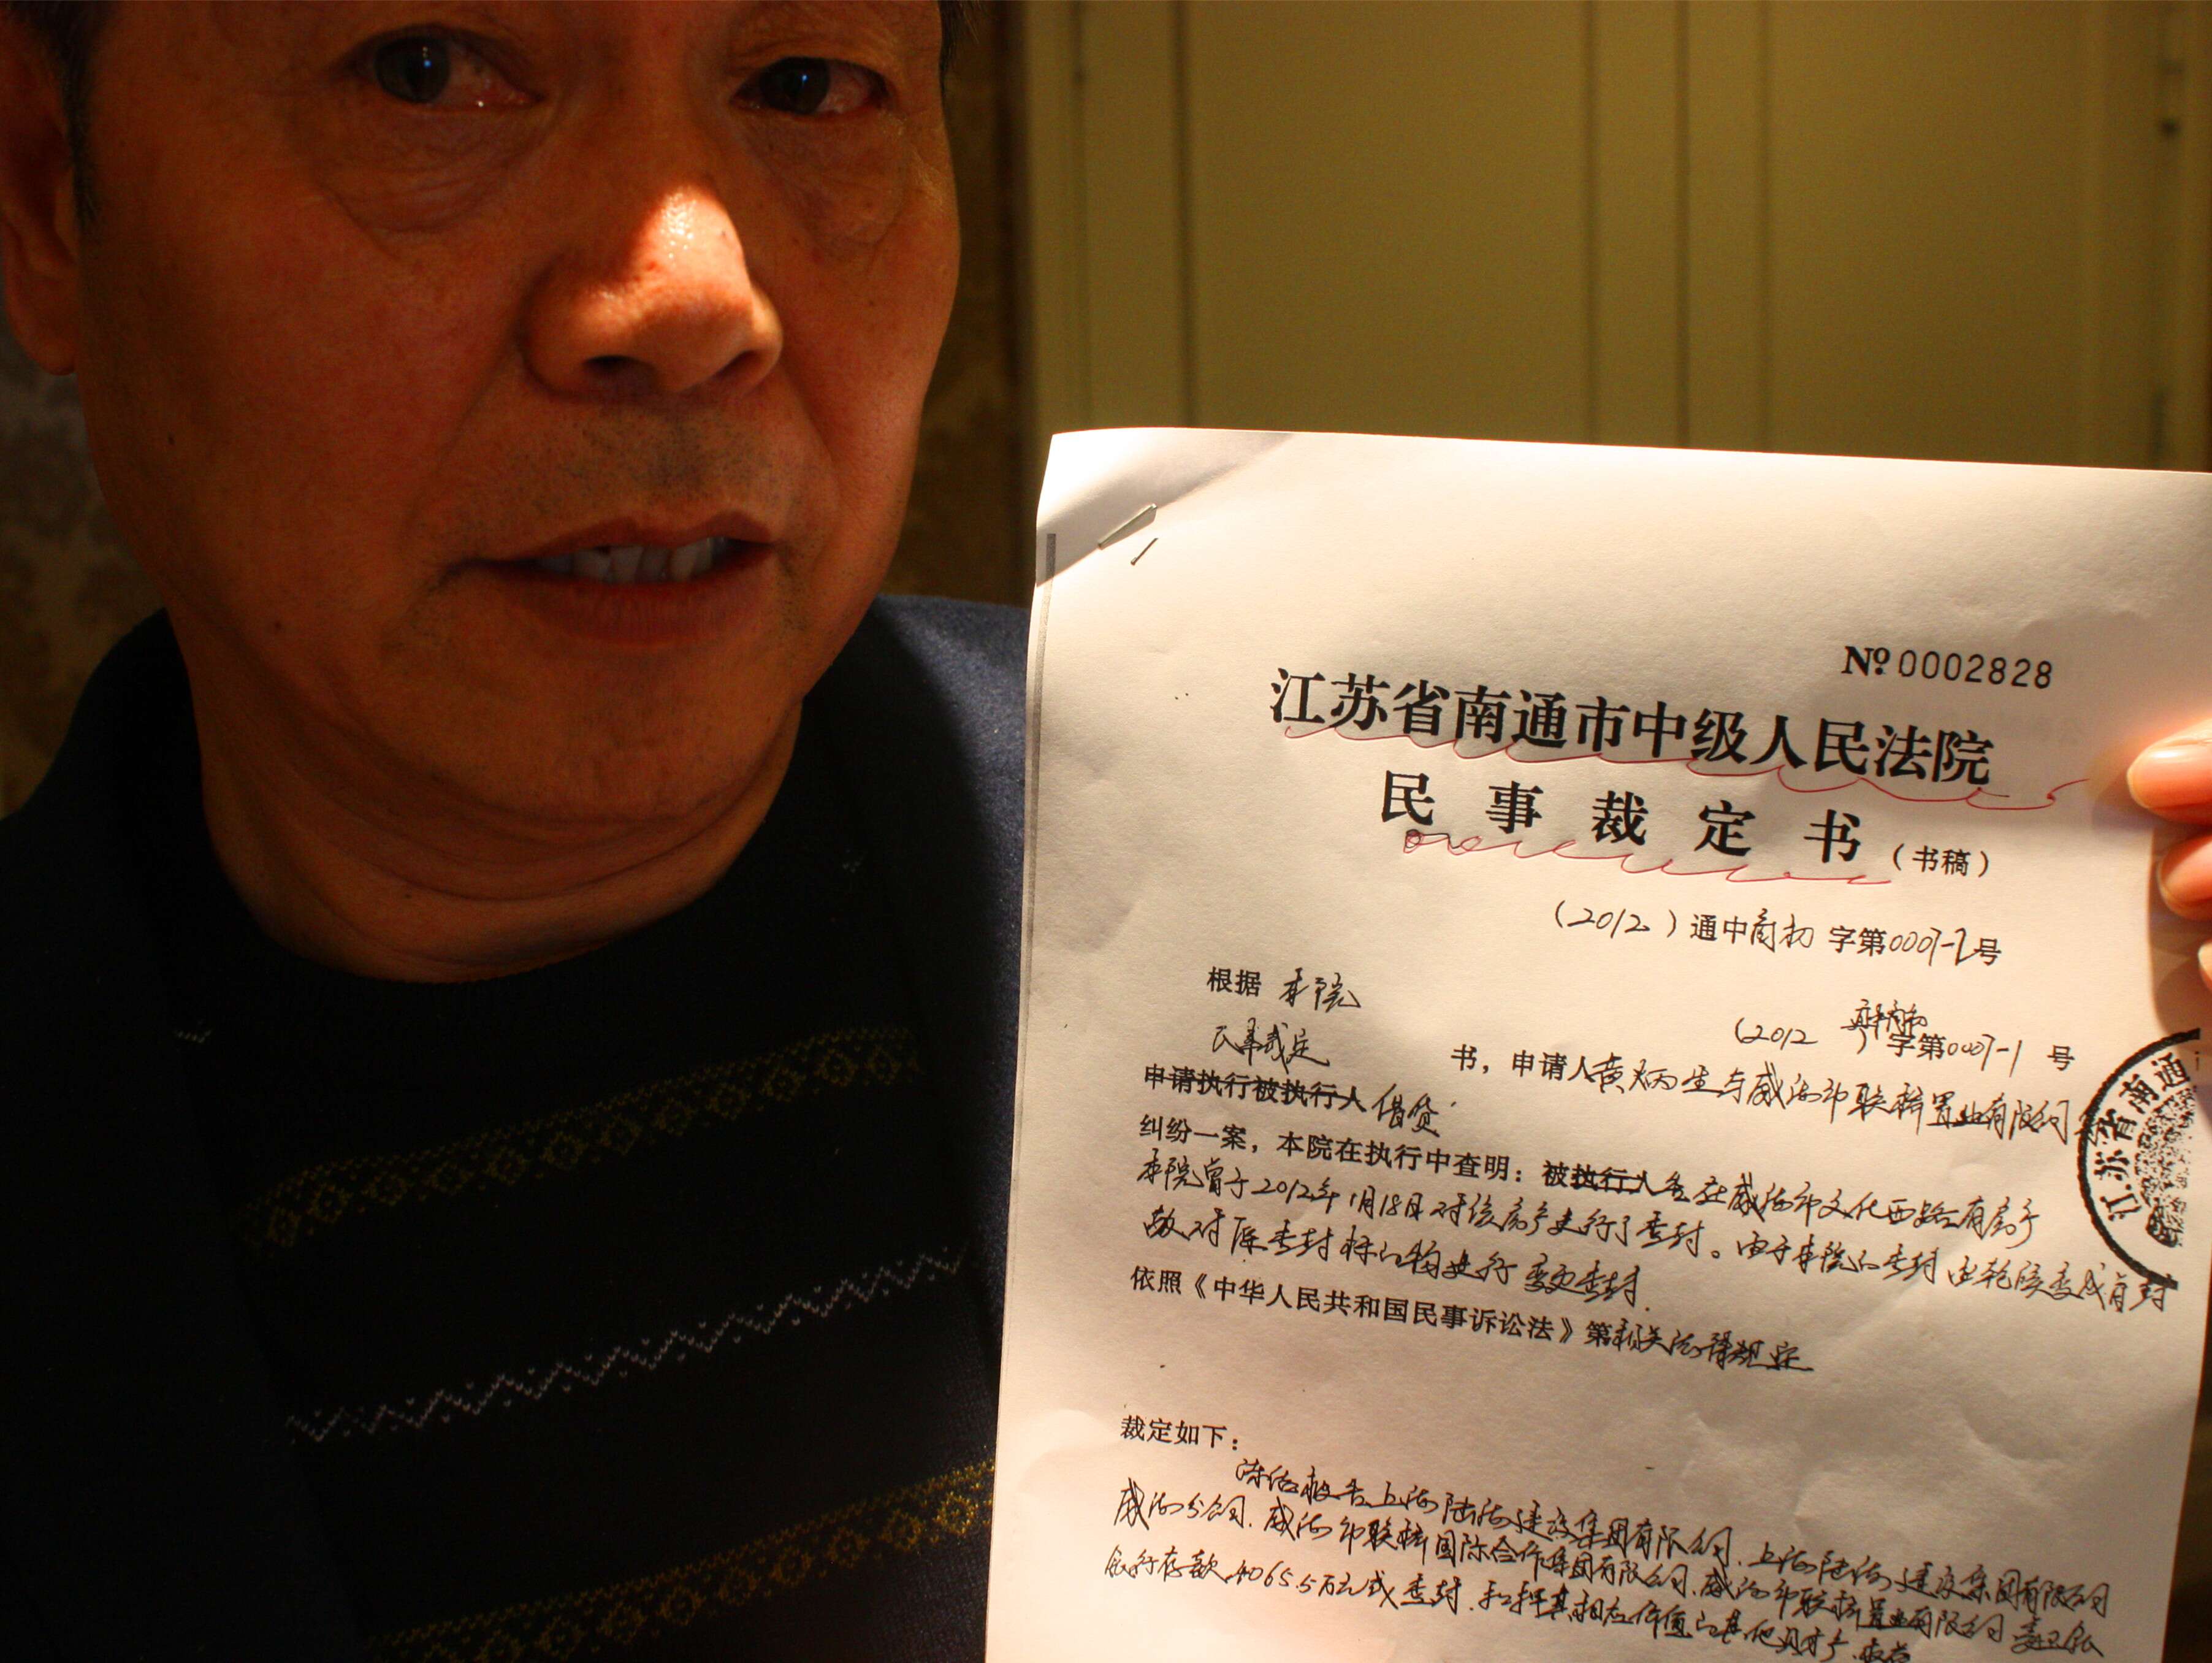 № 0002828
江苏省南通市中级人民法院
民事裁定书（书稿）
（2012）通中商初字第0007-2号
根据 本院 （2012 字第0007-1号
民事裁定 书，申请人黄炳生与威海市联桥置业有限公司
申请执行被执行人 借贷
纠纷一案，本院在执行中查明：被执行人 在威海市文化西路有房产
本院曾于2012年1月18日对该房产进行了查封。由于本院的查封 轮候查成首封
故对原查封标的物进行变更查封.
依照《中华人民共和国民事诉讼法》第相关法律规定
裁定如下：
冻结被告上海陆海建设集团有限公司、上海陆海建设集团有限公司
威海分公司、威海市联桥国际合作集团有限公司、威海市联桥置业有限公司
银行存款4065.5万元或查封、扣押其相应价值的其他财产
江苏省南通